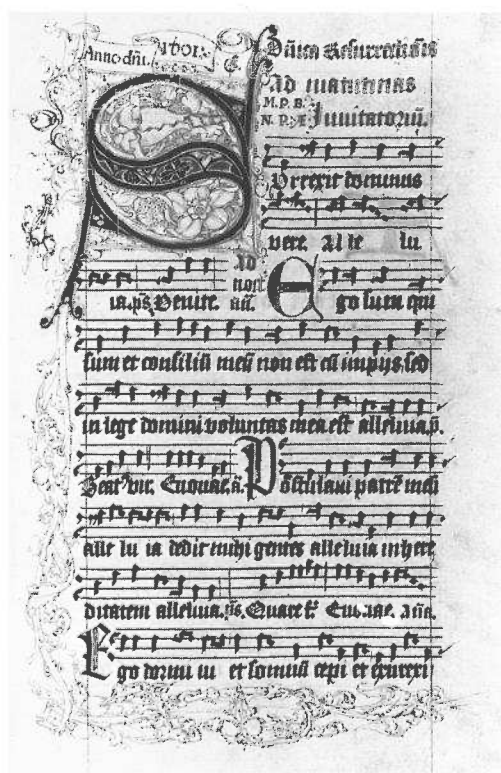 Anno dñi.
Resurrectiõis
ad matutinas
M. P. B.
Inuitatoriũ.
Surrexit dominus
vere. Al le lu
ia. ps Venite. Ad Ego sum qui
sum et consiliũ meũ non est cũ impijs sed
in lege domini voluntas mea est alleluia. p̃.
Beatꝰ vir. Euouae. ã. Postulaui patrẽ meũ
alle lu ia dedit mihi gentes alleluia in here
ditatem alleluia. ps. Quare Euouae. Aña.
Ego dormi ui et somnũ cepi et exurrexi